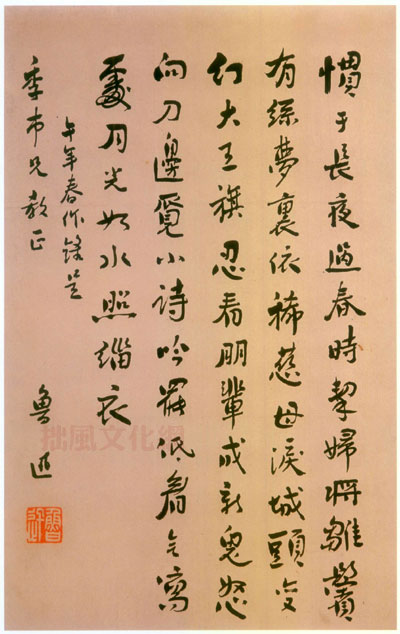 慣于長夜過春時挈婦將雛鬢
有絲夢裏依稀慈母淚城頭变
幻大王旗忍看朋輩成新鬼怒
向刀邊覓小詩吟罷低眉无寫
處月光如水照緇衣
午年春作錄呈
季市兄教正
魯迅
魯迅
拙風文化網